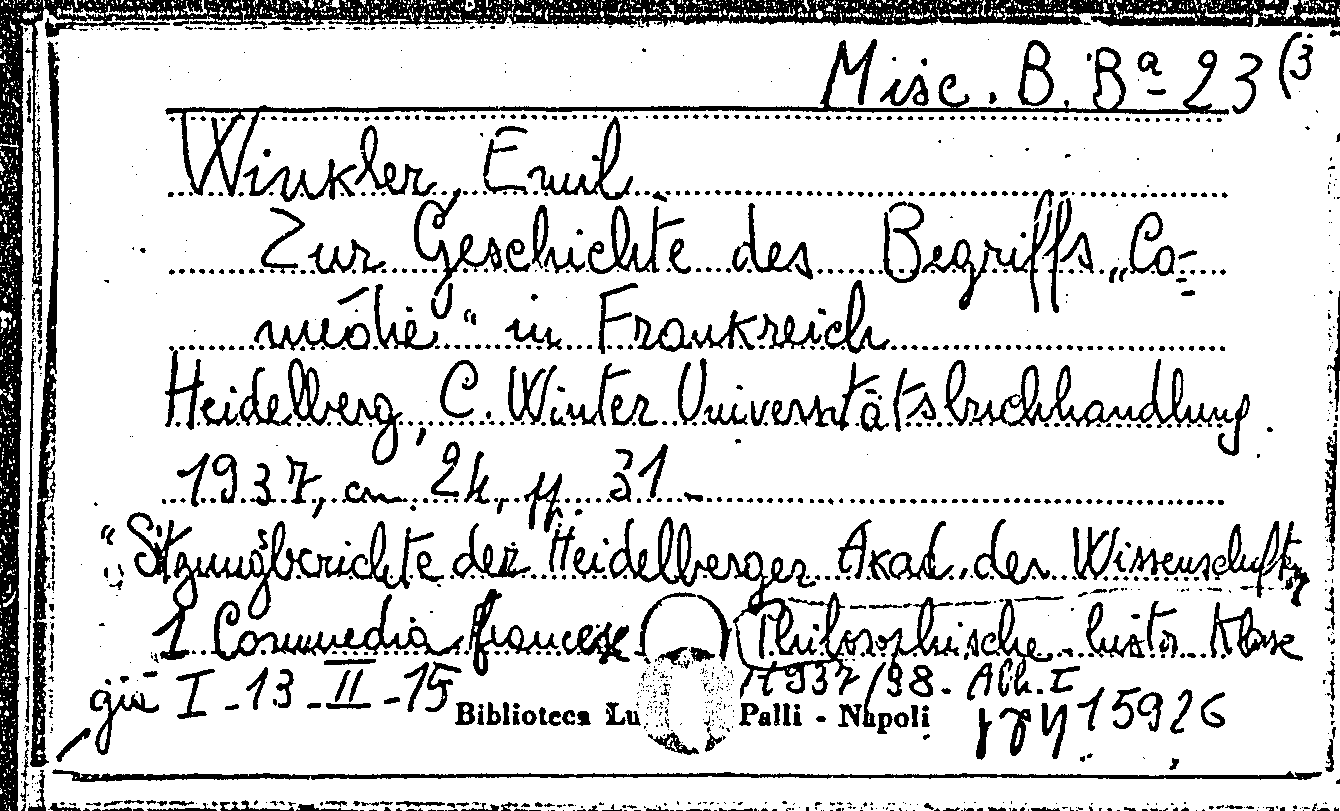 Misc. B. Bª 23 (3
Winkler, Emil
Zur Geschichte des Begriffs „Co-
médie“ in Frankreich
Heidelberg, C. Winter Universitätsbuchhandlung.
1937, cm. 24, pp. 31.
"Sitzungsberichte der Heidelberger Akad. der Wissenschaften
1 Commedia francese (Philosophische-histor. Klasse
1937/38. Abh. I
già I-13-II-15
Biblioteca Lu Palli - Napoli
15926